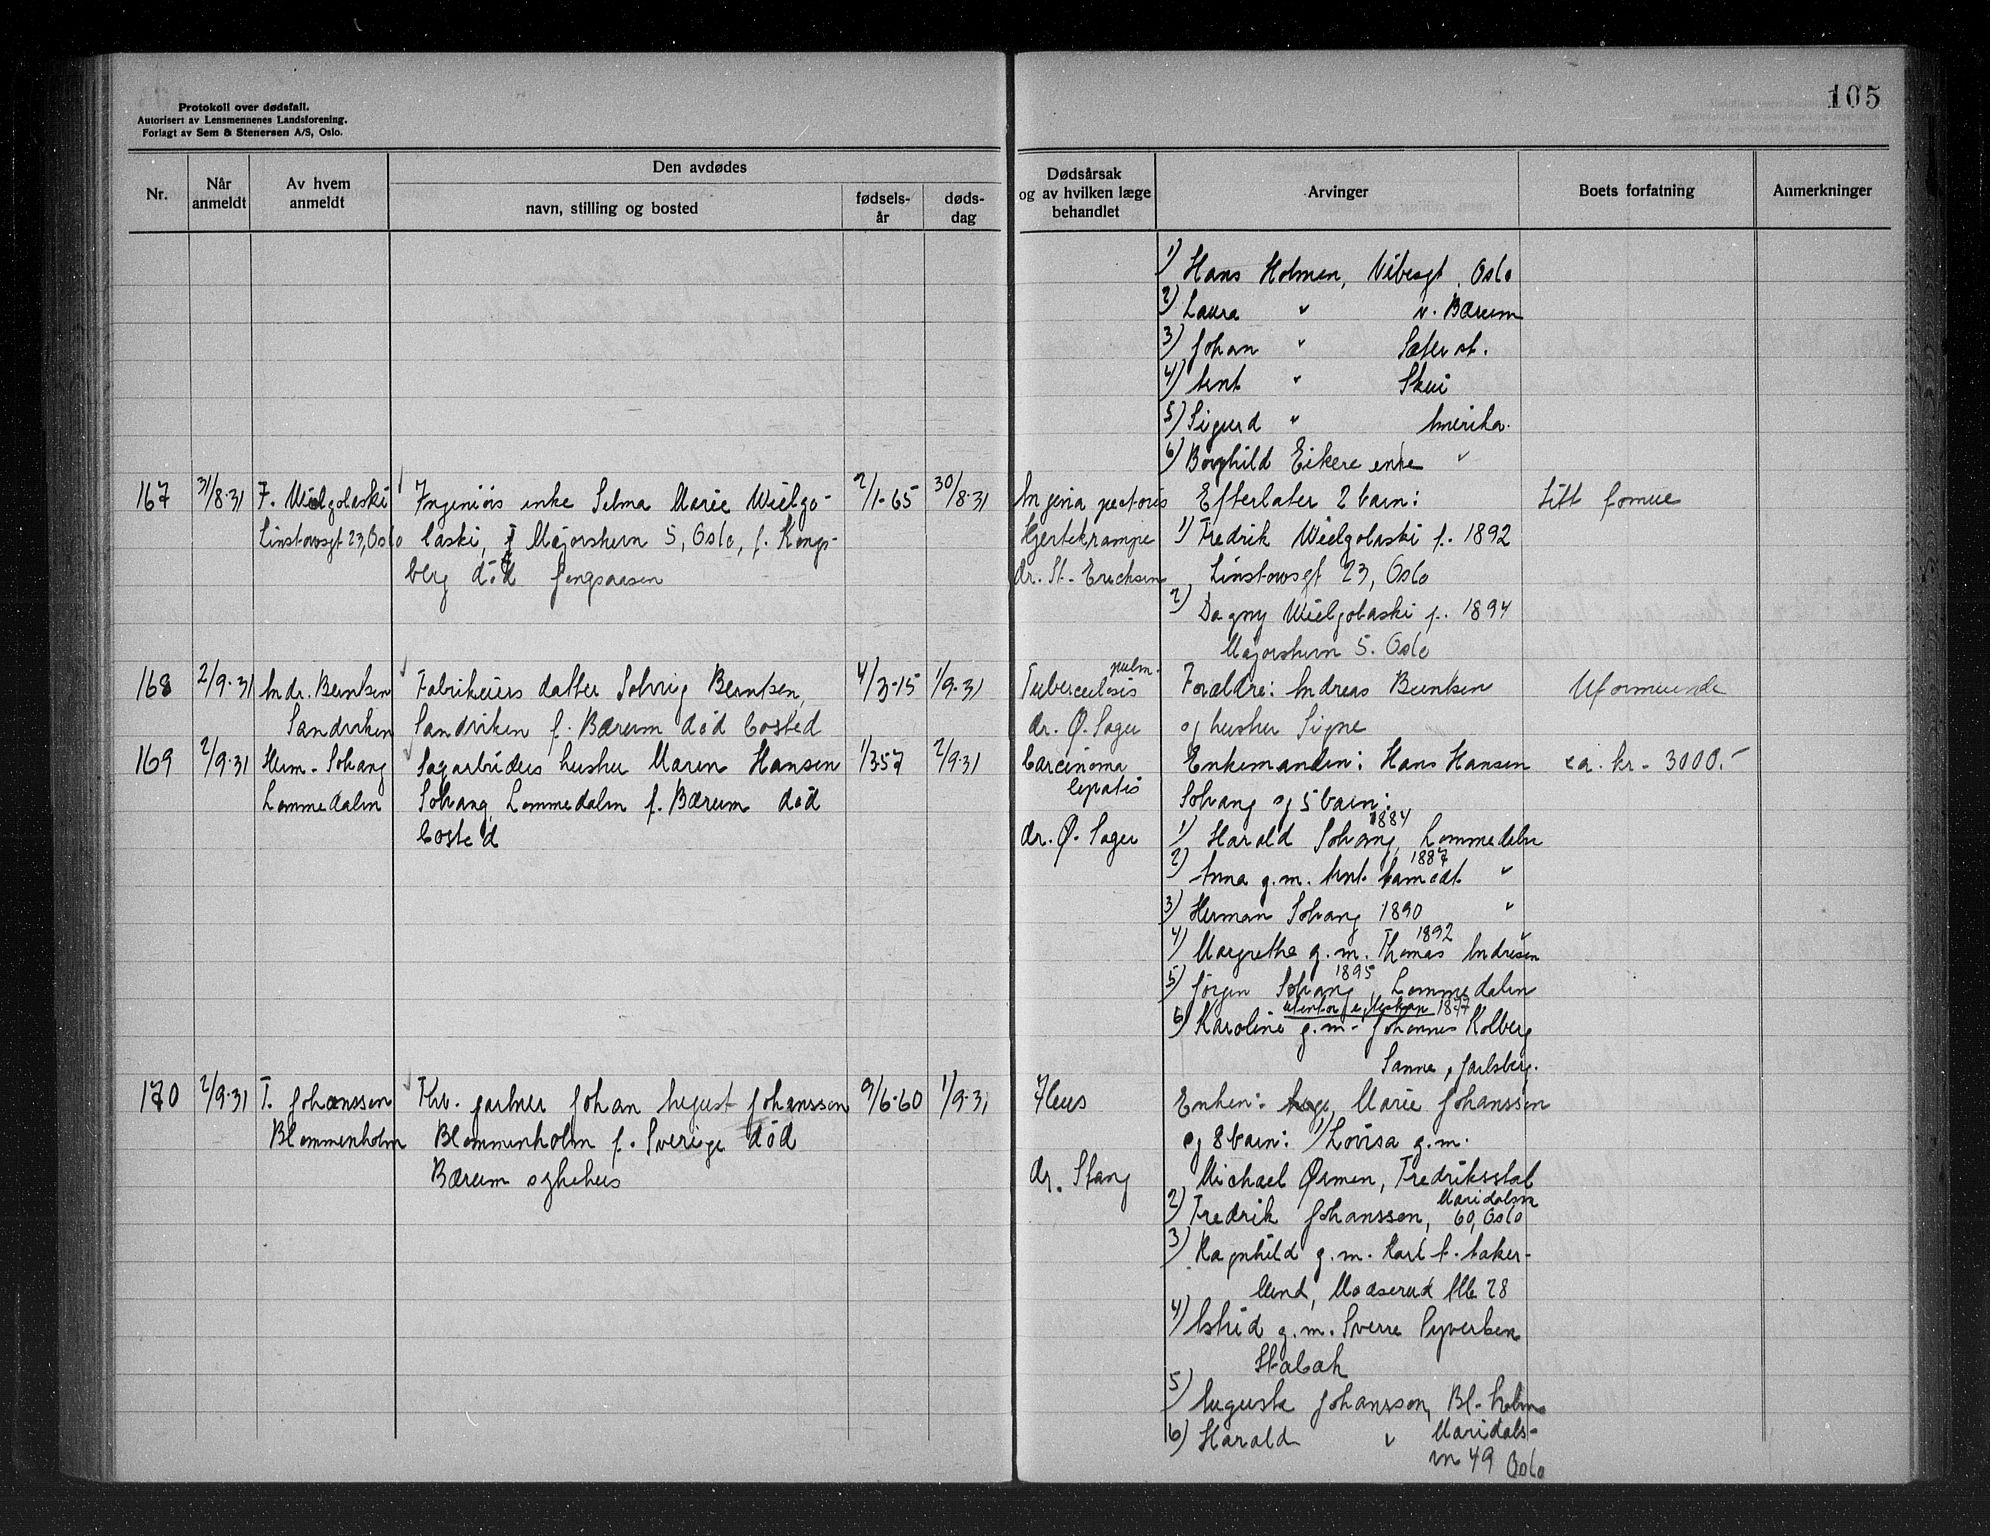 Protokoll over dødsfall.
Autorisert av Lensmennenes Landsforening.
Forlagt av Sem & Stenersen A/S, Oslo.
105
Nr.
Når anmeldt
Av hvem anmeldt
Den avdødes
navn, stilling og bosted
fødsels-år
døds-dag
Dødsårsak og av hvilken læge behandlet
Arvinger
Boets forfatning
Anmerkninger
1) Hans Holmen, Vibesgt. Oslo
2) Laura " v. Bærum
3) Johan " Sæter st.
4) Arnt " Skui
5) Sigurd " Amerika.
6) Borghild Eikere enke "
167 31/8-31 F. Wielgolaski Ingeniørs enke Selma Marie Wielgo- 2/1-65 30/8-31 Angina pectoris Efterlater 2 barn: Litt formue
Linstowsgt 23, Oslo laski, Majorstuvn 5, Oslo, f. Kongs- Hjertekrampe 1) Fredrik Wielgolaski f. 1892
berg død Jongsaasen dr. St. Erichsen Linstowsgt 23, Oslo
2) Dagny Wielgolaski f. 1894
Majorstuvn 5. Oslo
168 2/9-31 Andr. Berntsen Fabrikeiers datter Solveig Berntsen, 4/3-15 1/9-31 Tuberculosis pulm. Forældre: Andreas Berntsen Uformuende
Sandviken Sandviken f. Bærum død bosted dr. Ø. Sager og hustru Signe
169 2/9-31 Herm. Solvang Sagarbeiders hustru Maren Hansen 1/3 57 2/9-31 Carcinoma Enkemanden: Hans Hansen ca. kr. 3000.-
Lommedalen Solvang, Lommedalen f. Bærum død hepatis Solvang og 5 barn:
bosted dr. Ø. Sager 1) Harald Solvang, 1884 Lommedalen
2) Anna g.m. Arnt 1887 "
3) Herman Solvang 1890 "
4) Margrethe g.m. Thomas 1892 Andresen "
5) Jørgen Solvang, 1895 Lommedalen
6) Karoline g.m. Johannes Kolberg
utenfor e,teskap 1877
Sanne, Jarlsberg.
170 2/9-31 T. Johanssen Fhv. gartner Johan August Johanssen 9/6-60 1/9-31 Ileus Enken: Marie Johanssen
Blommenholm Blommenholm f. Sverige død og 8 barn: 1) Lovisa g.m.
Bærum sykehus dr. Stang Michael Ørmen, Fredriksstad
2) Fredrik Johanssen, Maridalsvn 60, Oslo
3) Ragnhild g.m. Karl A. Aaker-
lund, Modserud Alle 28
4) Astrid g.m. Sverre Syvertsen
Stabæk
5) Auguste Johanssen, Bl.holm
6) Harald " Maridals-
vn 49 Oslo